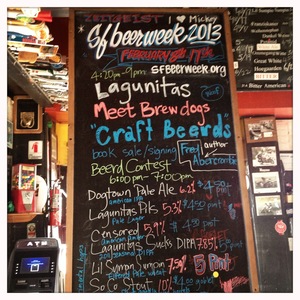 ZEITGEIST I ♥ Mickey
Sf beerweek 2013
FEBRUARY 8th 17th
4:20pm-9pm sfbeerweek.org
Lagunitas
Meet Brewdogs
"Craft Beerds"
book sale/signing Fred Abercrombie
author
Beerd Contest
6:00pm - 7:00pm
Dogtown Pale Ale 6.2% $4.50 pint
american IPA
Lagunitas PILS 5.3%
Censored 5.9%
Lagunitas Sucks DIPA 7.85%
Lil Sumpin Sumpin 7.5% 5 Pint
So Co Stout 10%
Franziskaner
Hoegaarden
Great White
BITTER
Better American
ATM